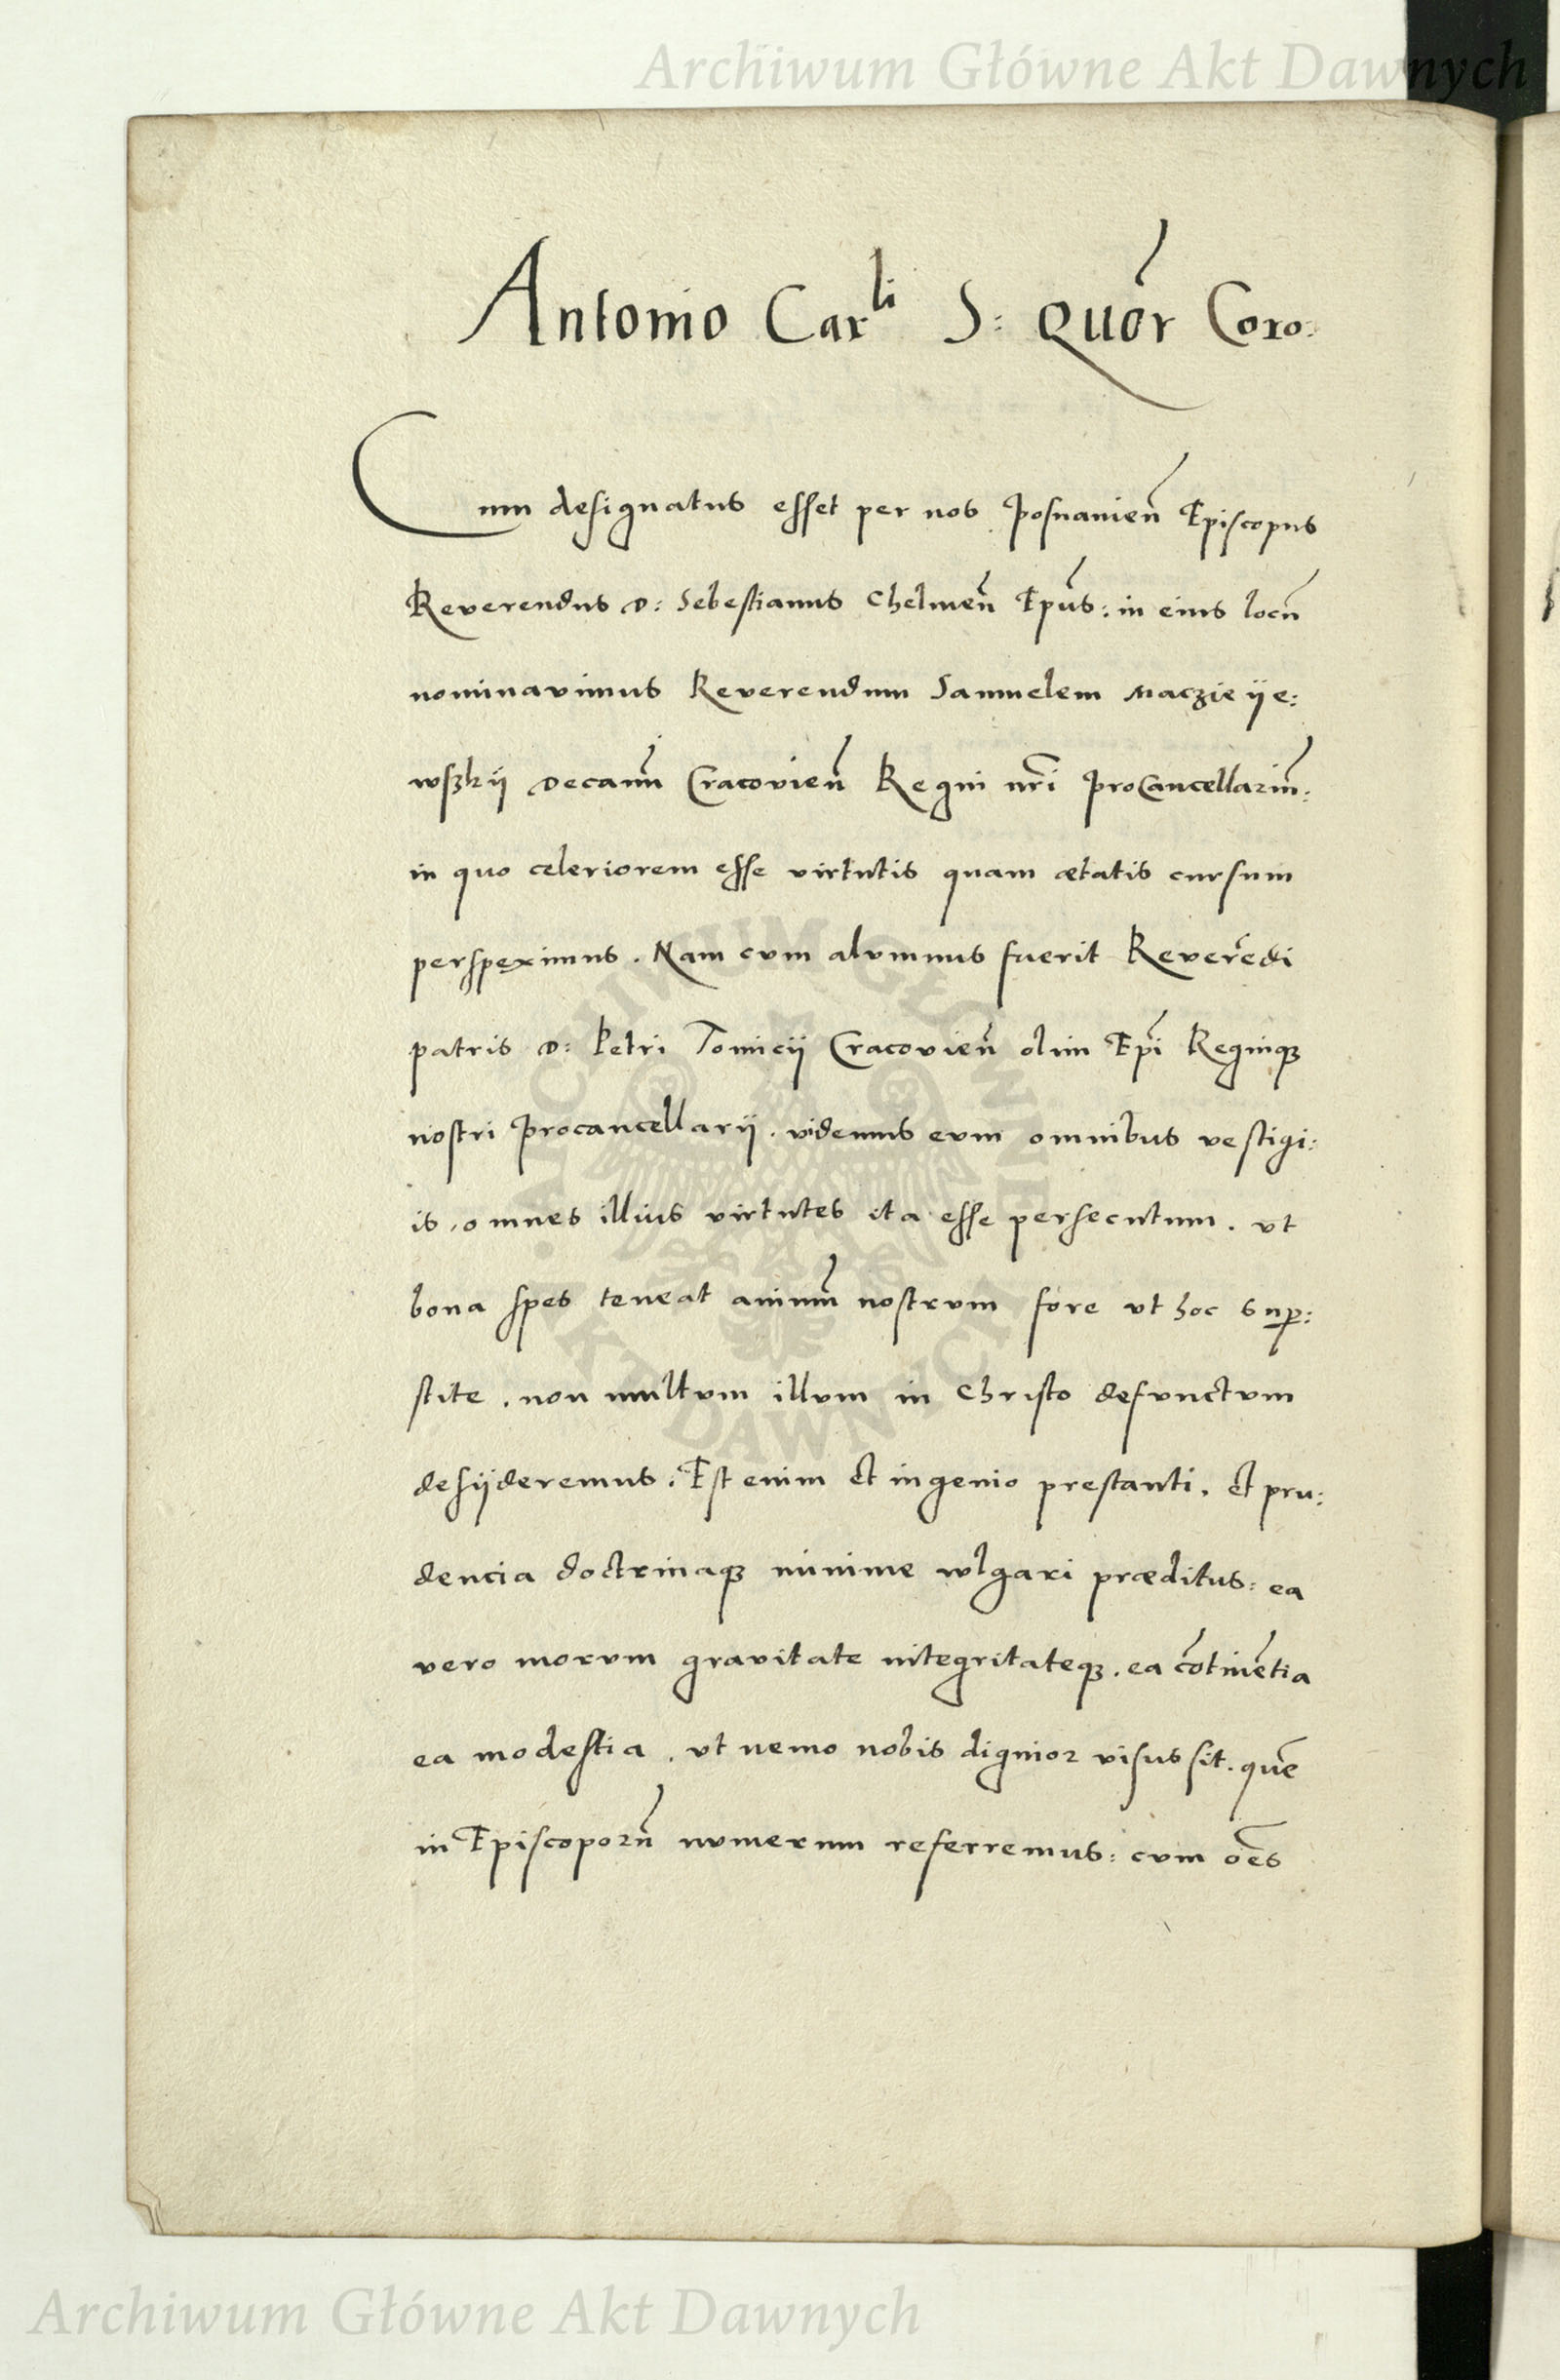 Archiwum Główne Akt Dawnych
Antonio Car^li S: Quor̃ Coro:
Cum designatus esset per nos Posnanień Episcopus
Reverendus D: Sebestianus Chelmeñ Epũs: in eius locũ
nominavimus Reverendum Samuelem Maczieije:
wszkij Decanũ Cracovieñ Regni nr̃i ProCancellariũ:
in quo celeriorem esse virtutis quam ætatis cursum
perspeximus. Nam cum alumnus fuerit Reverẽdi
patris D: Petri Tomicij Cracovieñ olim Ep̃i Regniqꝫ
nostri Procancellarij. videmus eum omnibus vestigi:
is, omnes illius virtutes ita esse persecutum. ut
bona spes teneat animũ nostrum fore ut hoc suꝑ:
stite. non multum illum in Christo defunctum
desijderemus. Est enim et ingenio prestanti. et pru:
dencia doctrinaqꝫ minime wlgari præditus: ea
vero morum gravitate integritateqꝫ. ea cõtinẽtia
ea modestia. ut nemo nobis dignior visus sit. quẽ
in Episcoporũ numerum referremus: cum oẽs
ARCHIWUM GŁÓWNE AKT DAWNYCH
Archiwum Główne Akt Dawnych